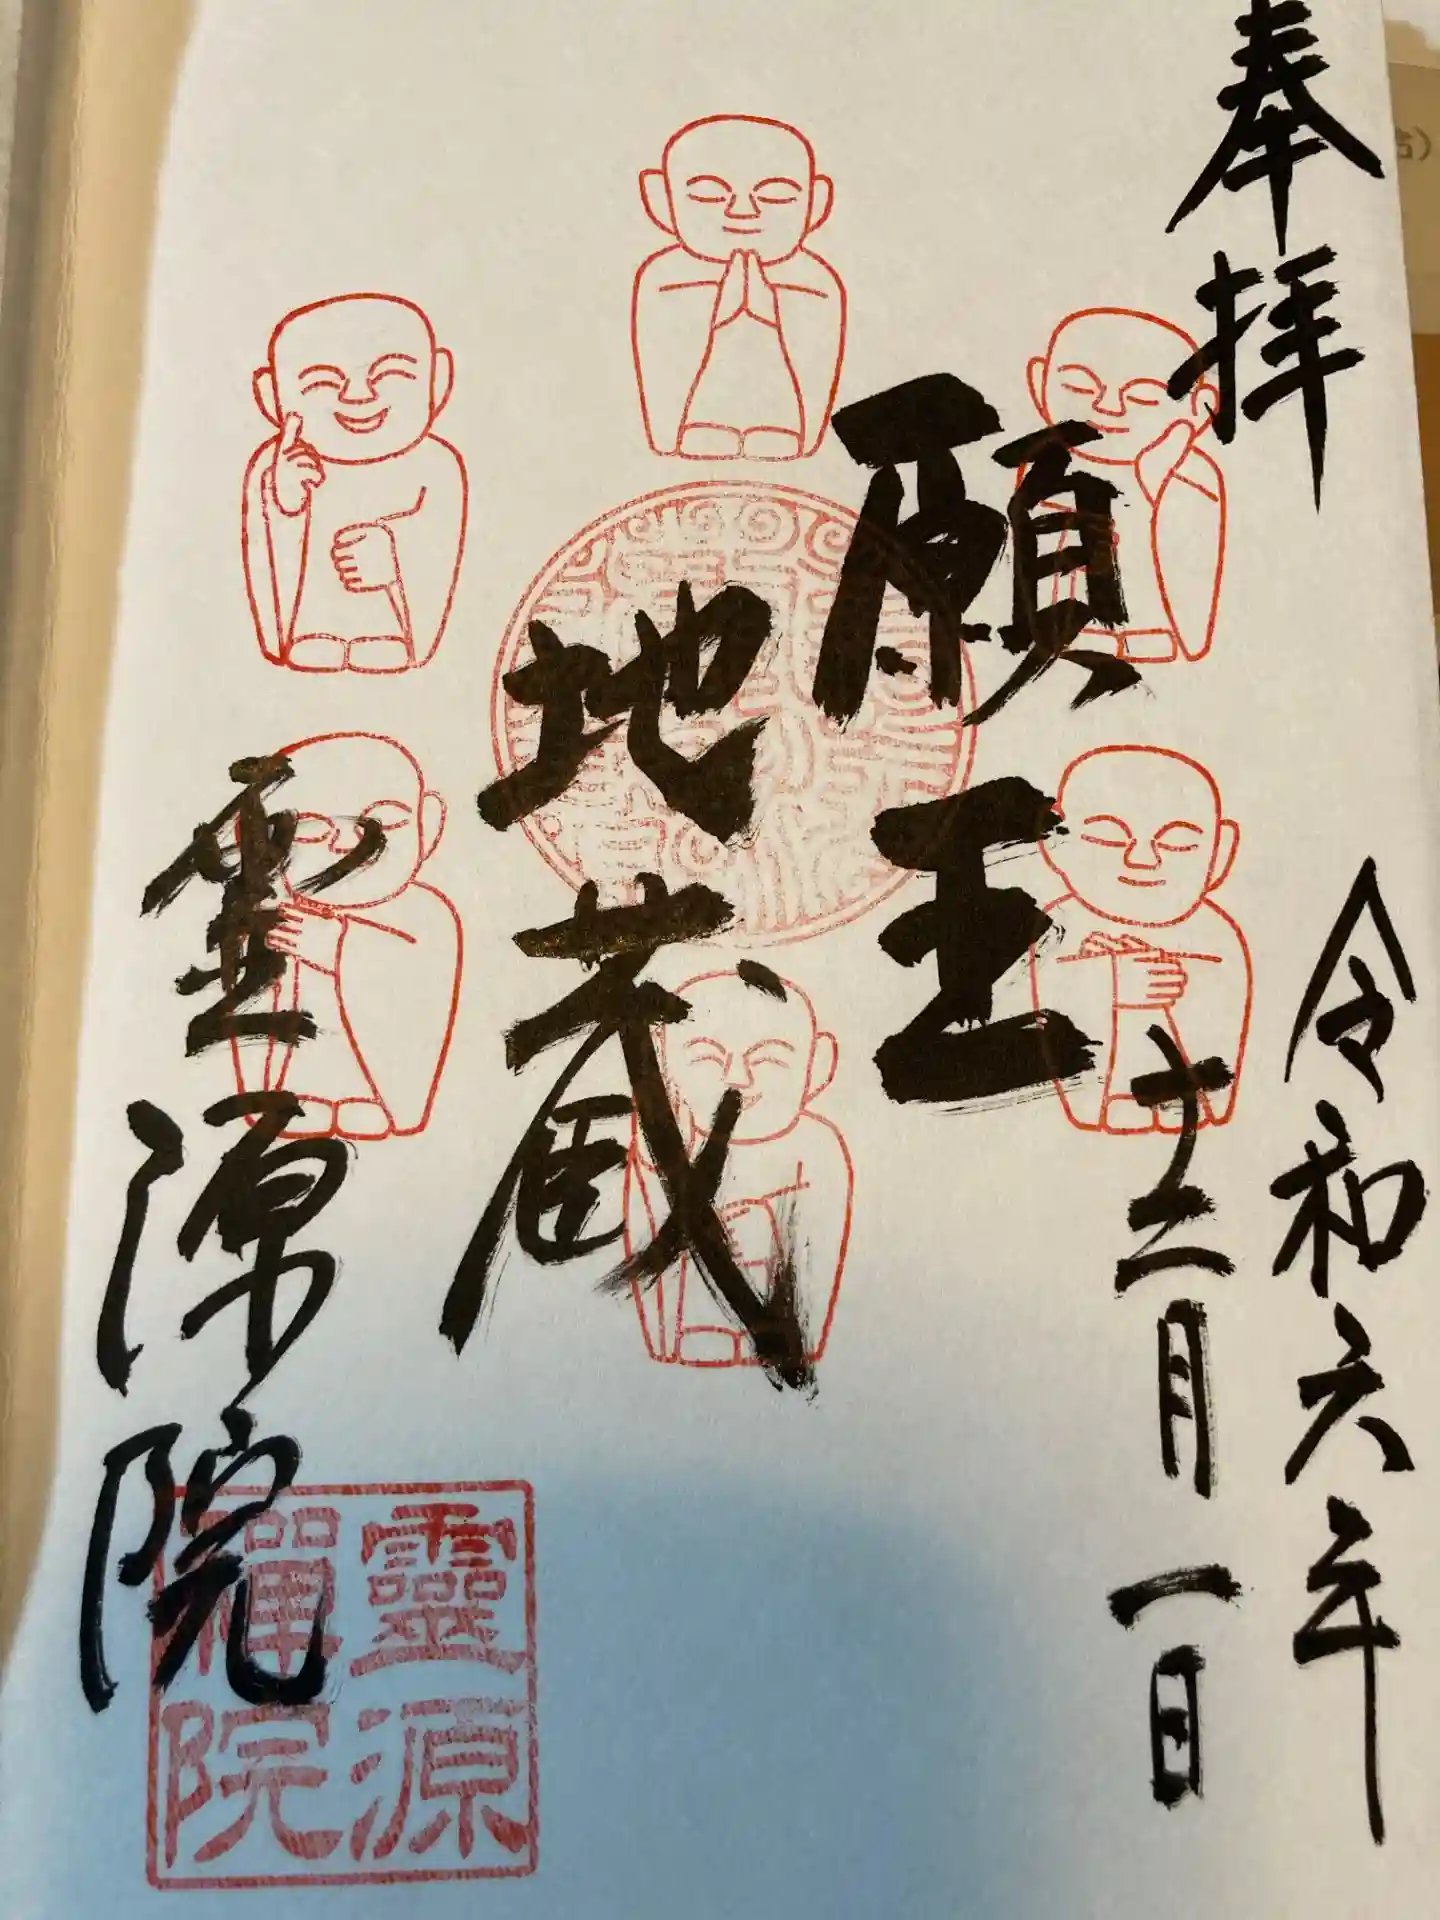 奉拝
令和六年
十二月一日
願王
地蔵
霊源院
靈源
禅院